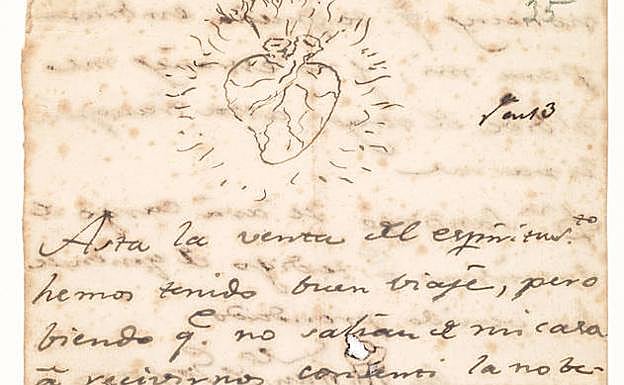 25
Asta la venta del espiritu s.to
hemos tenido buen viaje, pero
biendo q.e no salian de mi casa
â recivirnos conta la nobe-